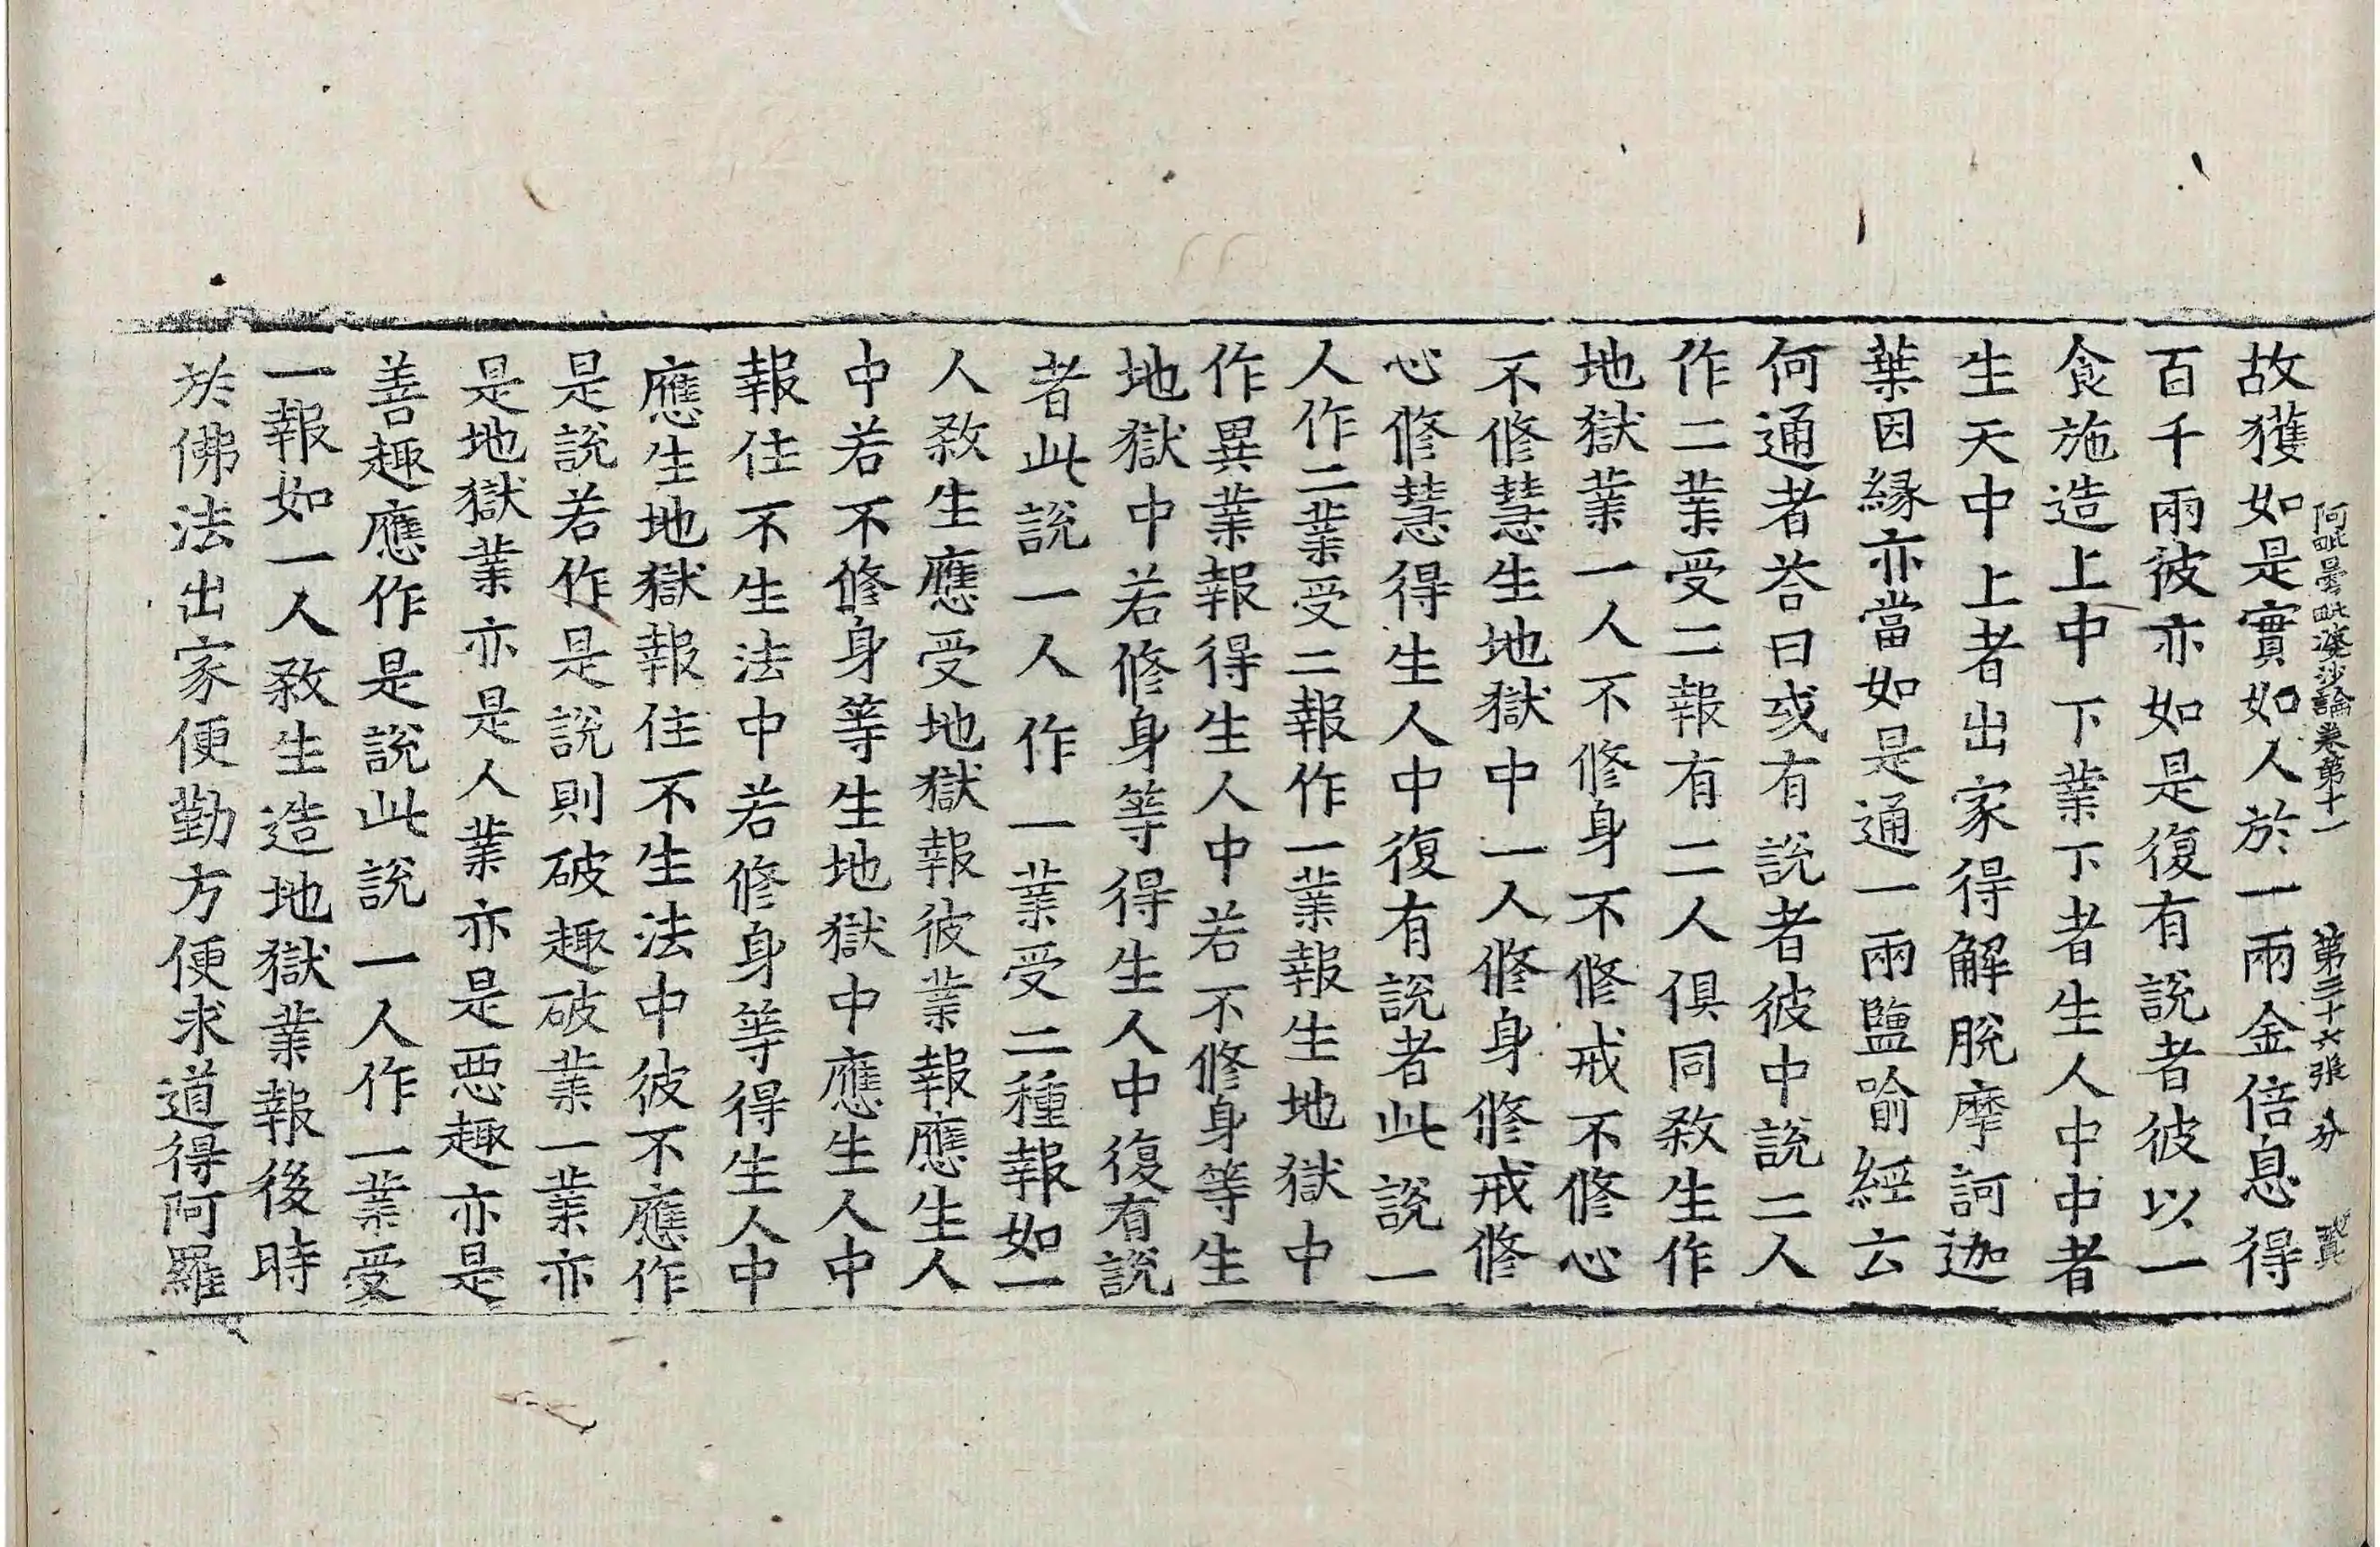 阿毗曇毗婆沙論卷第十一 第三十六張 分
故獲如是實如人於一兩金倍息得
百千兩彼亦如是復有說者彼以一
食施造上中下業下者生人中中者
生天中上者出家得解脫摩訶迦
葉因縁亦當如是通一兩鹽喻經云
何通者荅曰或有說者彼中說二人
作二業受二報有二人俱同敎生作
地獄業一人不修身不修戒不修心
不修慧生地獄中一人修身修戒修
心修慧得生人中復有說者此說一
人作二業受二報作一業報生地獄中
作異業報得生人中若不修身等生
地獄中若修身等得生人中復有說
者此說一人作一業受二種報如一
人敎生應受地獄報彼業報應生人
中若不修身等生地獄中應生人中
報住不生法中若修身等得生人中
應生地獄報住不生法中彼不應作
是說若作是說則破趣破業一業亦
是地獄業亦是人業亦是惡趣亦是
善趣應作是說此說一人作一業受
一報如一人敎生造地獄業報後時
於佛法出家便勤方便求道得阿羅